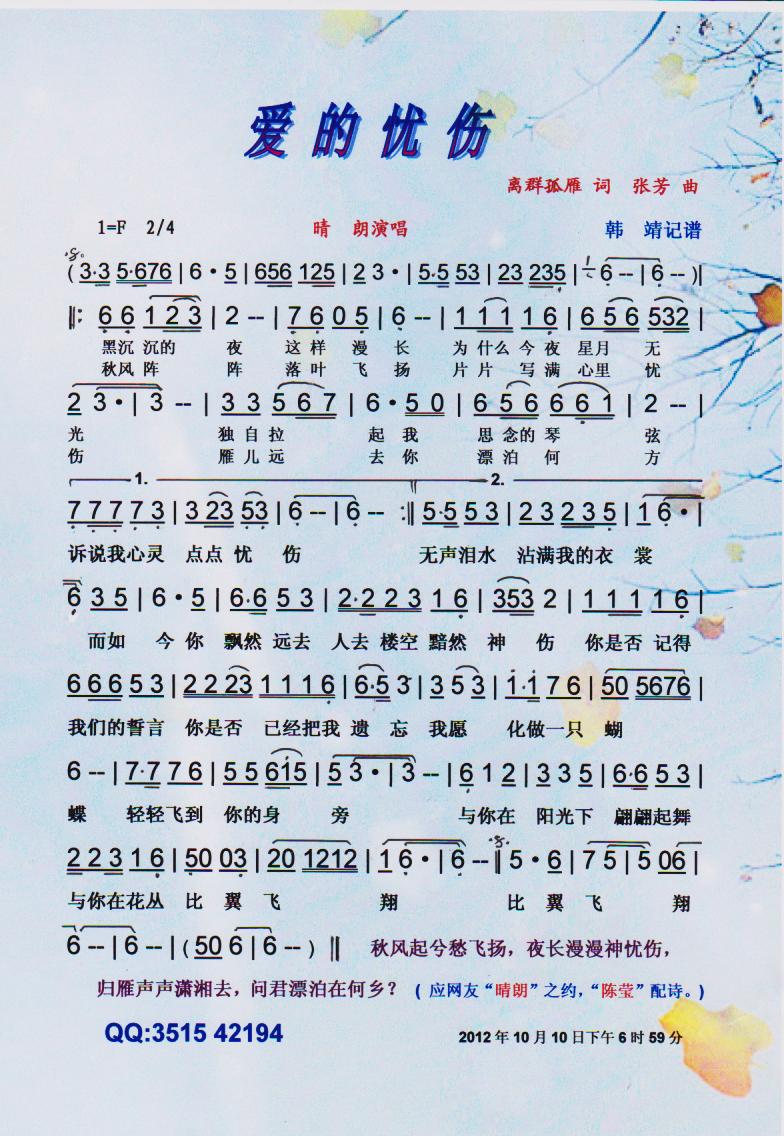 爱的忧伤
离群孤雁 词 张芳 曲
1=F 2/4 晴 朗演唱 韩 靖记谱
(3·3 5·676 | 6·5 | 656 125 | 2 3· | 5·5 53 | 23 235 | 6 -- | 6 -- )||
||: 6 6 1 2 3 | 2 -- | 7 6 0 5 | 6 -- | 1 1 1 1 6 | 6 5 6 532 |
黑沉 沉的 夜 这样 漫 长 为 什么 今夜 星月 无
秋风 阵 阵 落叶 飞 扬 片片 写满 心里 忧
2 3· | 3 -- | 3 3 5 6 7 | 6·5 0 | 6 5 6 6 6 1 | 2 -- |
光 独自拉 起我 思念的琴 弦
伤 雁儿远 去你 漂泊何 方
1. 2.
7 7 7 7 3 | 3 23 53 | 6 -- | 6 -- :|| 5·5 5 3 | 2 3 2 3 5 | 1 6· |
诉说我心灵 点点 忧 伤 无声泪水 沾满我的衣 裳
6 3 5 | 6·5 | 6·6 5 3 | 2·2 2 3 1 6 | 353 2 | 1 1 1 1 6 |
而如 今你 飘然 远去 人去 楼空 黯然 神 伤 你是否 记得
6 6 6 5 3 | 2 2 23 1 1 1 6 | 6·5 3 | 3 5 3 | 1·1 7 6 | 50 5676 |
我们的誓言 你是否 已经把我 遗 忘 我愿 化做一只 蝴
6 -- | 7·7 7 6 | 5 5 615 | 5 3· | 3 -- | 6 1 2 | 3 3 5 | 6·6 5 3 |
蝶 轻轻飞到 你的身 旁 与你在 阳光下 翩翩起舞
2 2 3 1 6 | 50 03 | 20 1212 | 1 6· | 6 -- || 5·6 | 7 5 | 5 06 |
与你在花丛 比 翼 飞 翔 比 翼 飞 翔
6 -- | 6 -- | (50 6 | 6 -- ) || 秋风起兮愁飞扬，夜长漫漫神忧伤，
归雁声声潇湘去，问君漂泊在何乡？ （ 应网友“晴朗”之约，“陈莹”配诗。）
QQ:3515 42194 2012 年 10 月 10 日下午 6 时 59 分